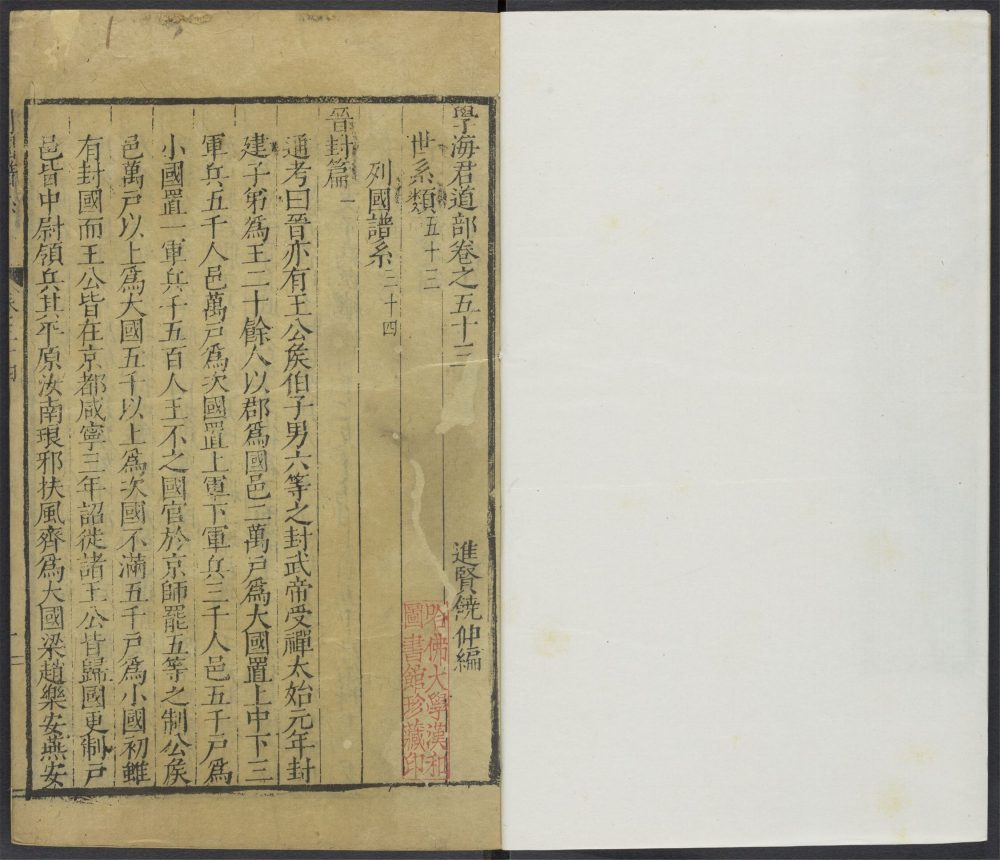 學海君道部卷之五十三
進賢饒伸編
世系類五十三
列國譜系二十四
晉封篇一
通考曰晉亦有王公侯伯子男六等之封武帝受禪太始元年封
建子弟爲王二十餘人以郡爲國邑二萬戸爲大國置上中下三
軍兵五千人邑萬戸爲次國置上軍下軍兵三千人邑五千戸爲
小國置一軍兵千五百人王不之國官於京師罷五等之制公侯
邑萬戸以上爲大國五千以上爲次國不滿五千戸爲小國初雖
有封國而王公皆在京都咸寧三年詔徙諸王公皆歸國更制戸
邑皆中尉領兵其平原汝南琅邪扶風齊爲大國梁趙樂安燕安
哈佛大學漢和
圖書館珍藏印